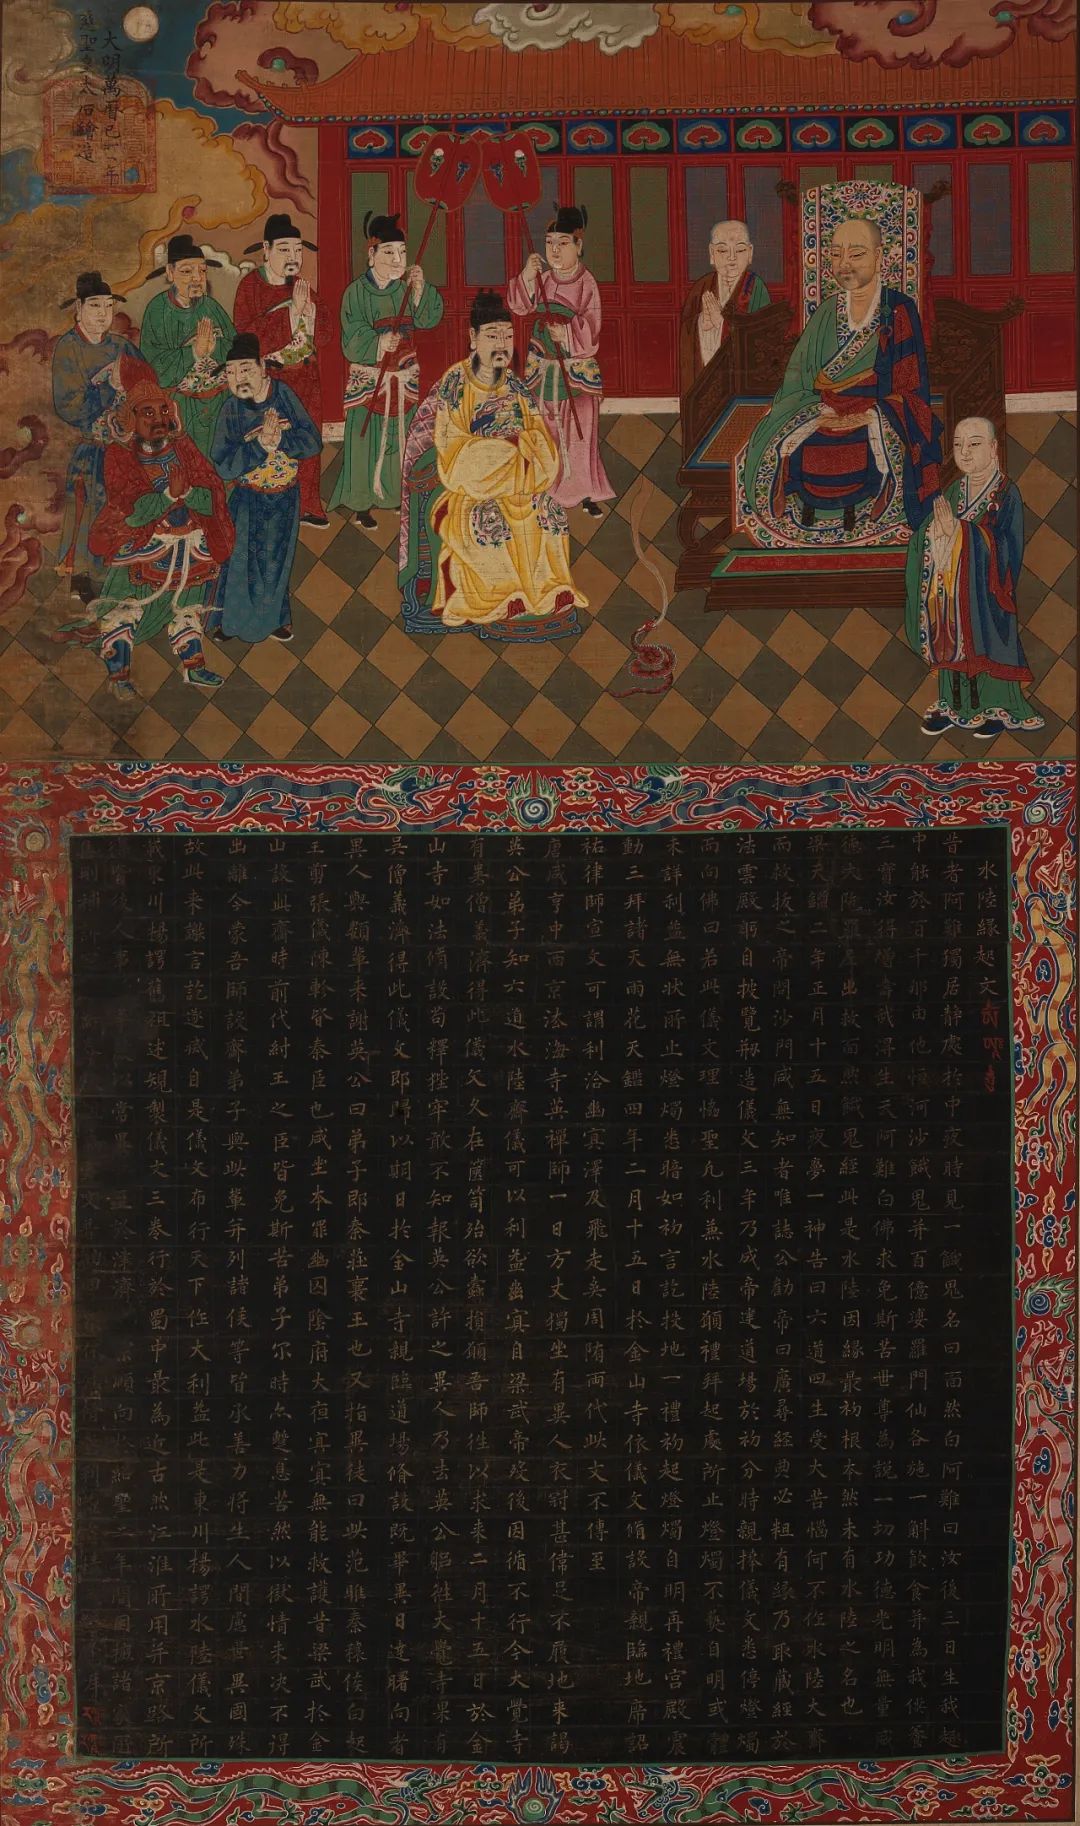 大明萬曆己酉年
慈聖皇太后繪造
水陸緣起文
昔者阿難獨居靜處於中夜時見一餓鬼名曰面然白阿難曰汝後三日生我趣
中能於百千那由他恒河沙餓鬼并百億婆羅門仙各施一斛飲食并為我供養
三寶汝得增壽我淂生天阿難白佛求免斯苦世尊為說一切功德光明無量威
德大陁羅尼出救面然餓鬼經此是水陸因緣最初根本然未有水陸之名也
梁天鑑二年正月十五日夜夢一神告曰六道四生受大苦惱何不作水陸大齋
而救拔之帝問沙門咸無知者唯誌公勸帝曰廣尋經典必粗有緣乃取藏經於
法雲殿躬自披覽剏造儀文三年乃成帝建道場於初分時親捧儀文悉停燈燭
而向佛曰若此儀文理協聖凡利益水陸願禮拜起處所止燈燭不爇自明或體
未詳利益無狀所止燈燭悉暗如初言訖投地一禮初起燈燭自明再禮宮殿震
動三拜諸天雨花天鑑四年二月十五日於金山寺依儀文脩設帝親臨地席詔
祐律師宣文可謂利洽幽㝠澤及飛走矣周隋兩代此文不傳至
唐咸亨中西京法海寺英禪師一日方丈獨坐有異人衣冠甚偉足不履地來謁
英公弟子知六道水陸齋儀可以利益幽㝠自梁武帝歿後因循不行今大覺寺
有吳僧義濟得此儀文久在篋笥殆欲蠹損願吾師徃以求來二月十五日於金
山寺如法脩設苟釋狴牢敢不知報英公許之異人乃去英公躬徃大覺寺果有
吳僧義濟得此儀文即歸以期日於金山寺親臨道場脩設既畢異日達曙向者
異人與顒輩來謝英公曰弟子即秦莊襄王也又指異徒曰此范雎秦穰侯白起
王翦張儀陳軫皆秦臣也咸坐本罪幽囚陰府大夜㝠㝠無能救護昔梁武於金
山設此齋時前代紂王之臣皆免斯苦弟子尒時亦暫息苦然以獄情未決不得
出離今蒙吾師設齋弟子與此輩并列諸侯等皆承善力將生人間慮世異國殊
故此來謝言訖遂滅自是儀文布行天下作大利益此是東川楊諤水陸儀文所
載東川楊諤舊祖述規製儀文三卷行於蜀中最為近古然江淮所用并京路所